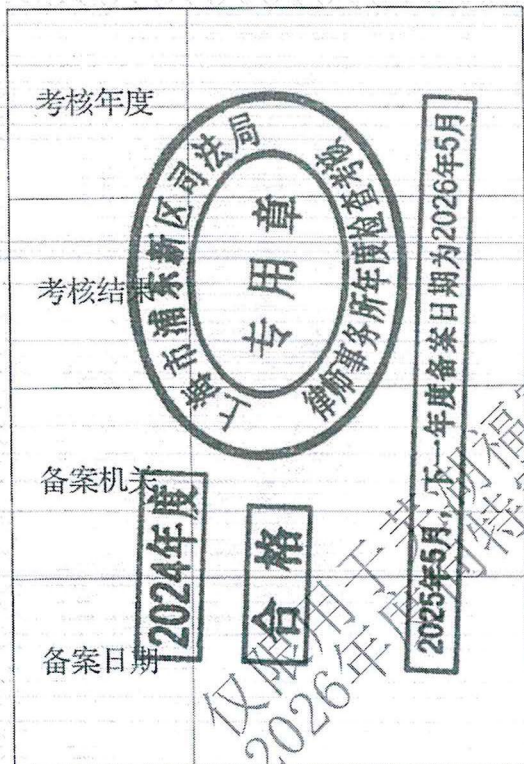 考核年度
考核结果
备案机关
备案日期
上海市浦东新区司法局
专用章
律师事务所年度检查考核
2024年度
合格
2025年5月，下一年度备案日期为2026年5月
仅限用于芜湖福
2026年度